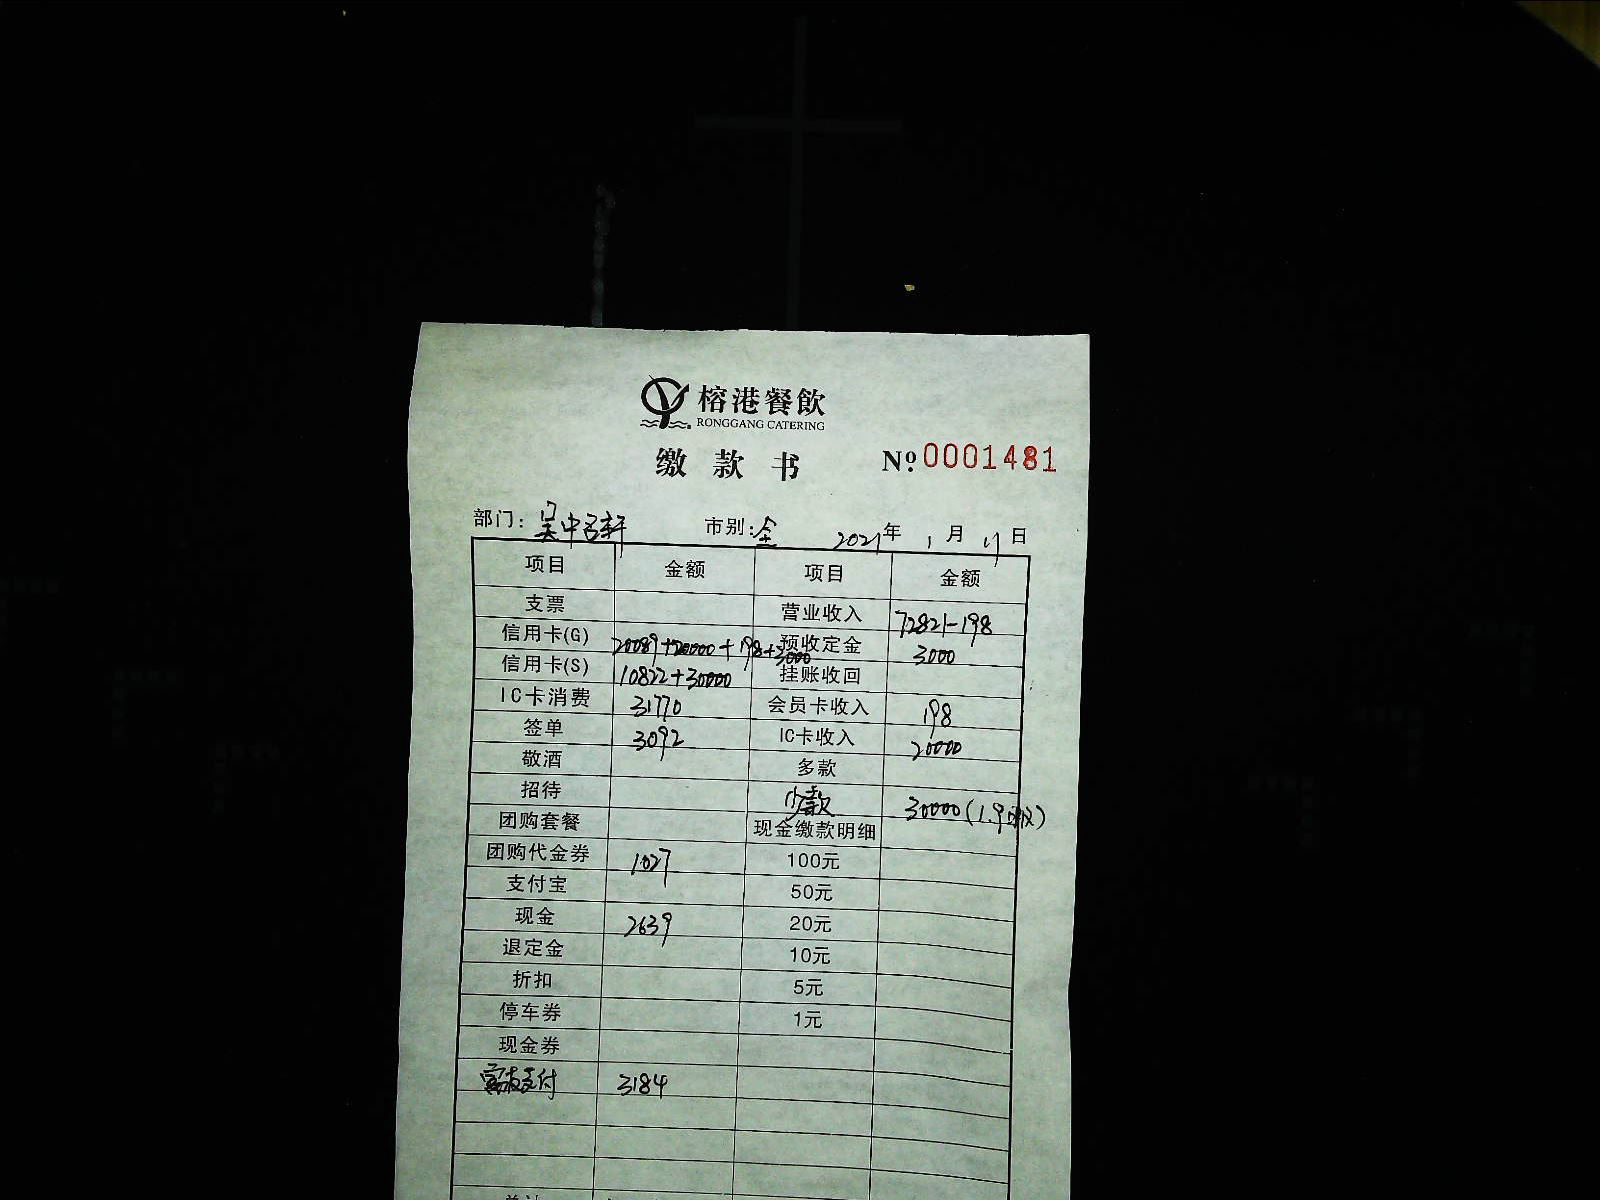 榕港餐飲
RONGGANG CATERING
缴款书 №0001481
部门: 吴中名轩 市别: 全 2021年 1月 17日
项目 金额 项目 金额
支票 营业收入 72821-198
信用卡(G) 20089+20000+198+3000 预收定金 3000
信用卡(S) 10822+30000 挂账收回
IC卡消费 31770 会员卡收入 198
签单 3092 IC卡收入 20000
敬酒 多款
招待 少款 30000(1.9
团购套餐 现金缴款明细
团购代金券 1027 100元
支付宝 50元
现金 2639 20元
退定金 10元
折扣 5元
停车券 1元
现金券
支付 3184